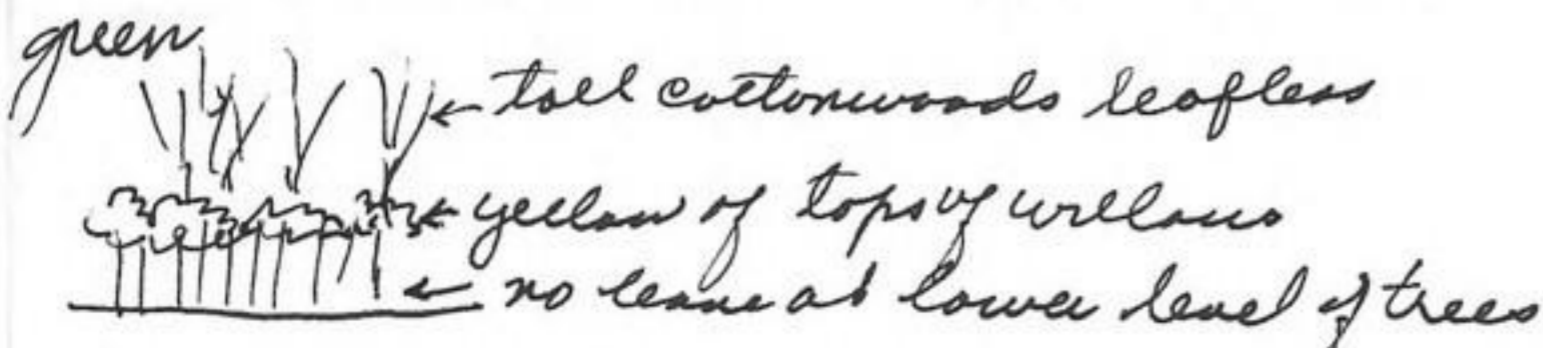 green
tall cottonwoods leafless
yellow of tops of willows
no leave at lower level of trees